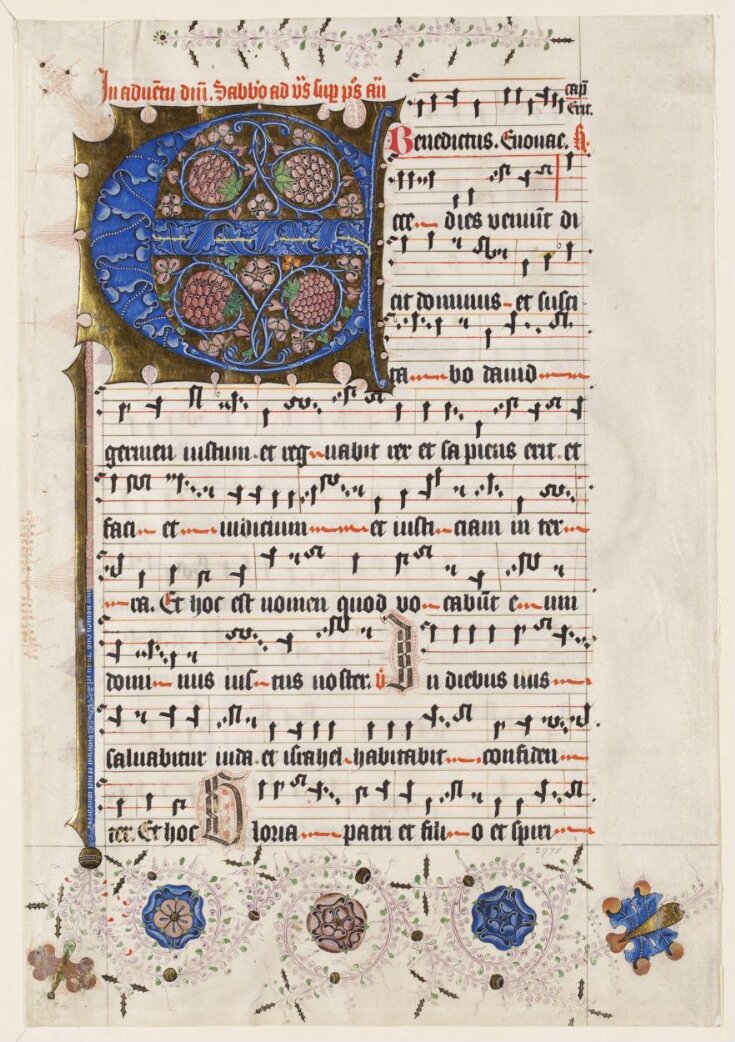 In aduētu dñi. Sabbo ad vs̄ sup ps̄ añ
cap̄
Erit.
Benedictus. Euouae. R.
E
cce dies veniūt di
cit dominus et susci
ta bo dauid
germen iustum et reg nabit rex et sa piens erit et
faci et iudicium et iusti ciam in ter
ra. Et hoc est nomen quod vo cabūt e um
domi nus ius tus noster. v̄ In diebus illis
saluabitur iuda et israhel habitabit confiden
ter. Et hoc Gloria patri et fili o et spiri
2970